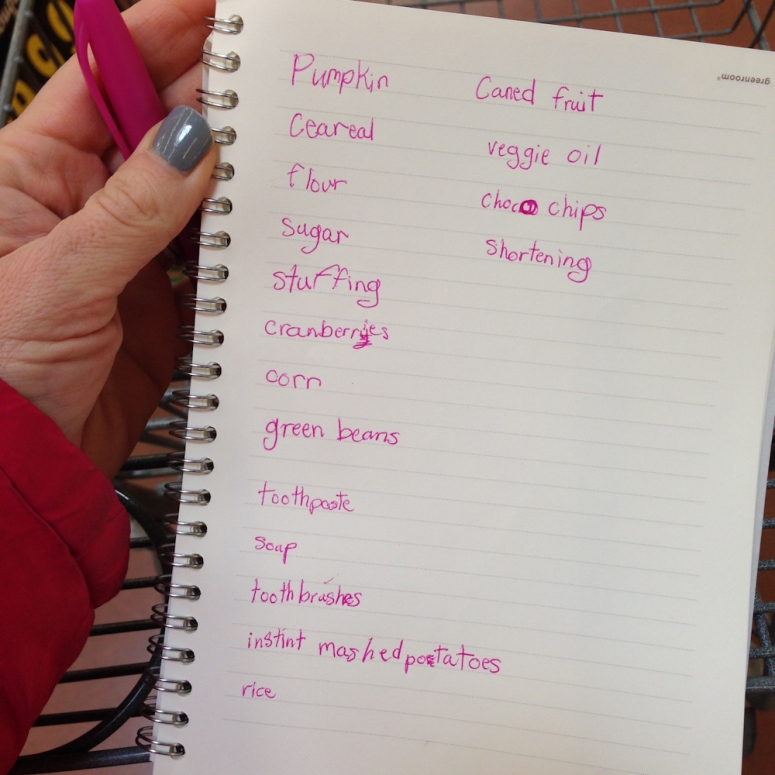 greenroom®
Pumpkin
Ceareal
flour
sugar
stuffing
cranberries
corn
green beans
toothpaste
soap
toothbrushes
instint mashed potatoes
rice
Caned fruit
veggie oil
choco chips
shortening